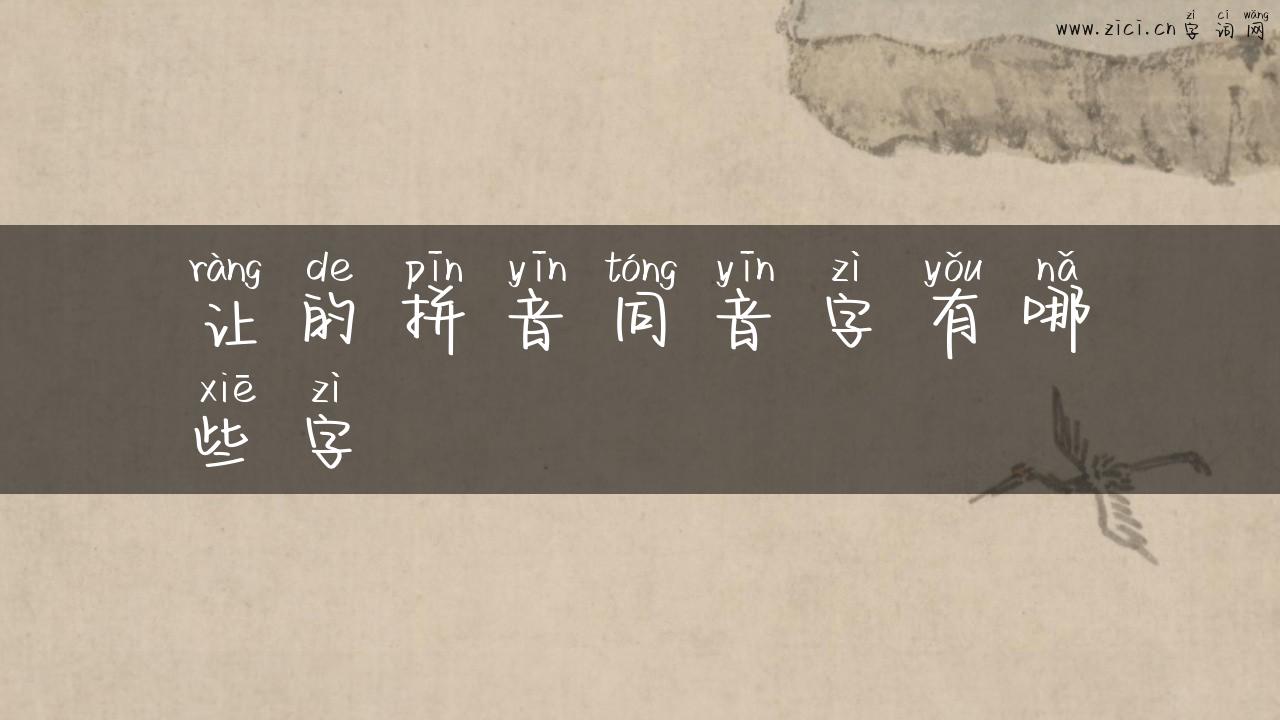 zì cí wǎng
www.zici.cn 字词网
ràng de pīn yīn tóng yīn zì yǒu nǎ
让的拼音同音字有哪
xiē zì
些字